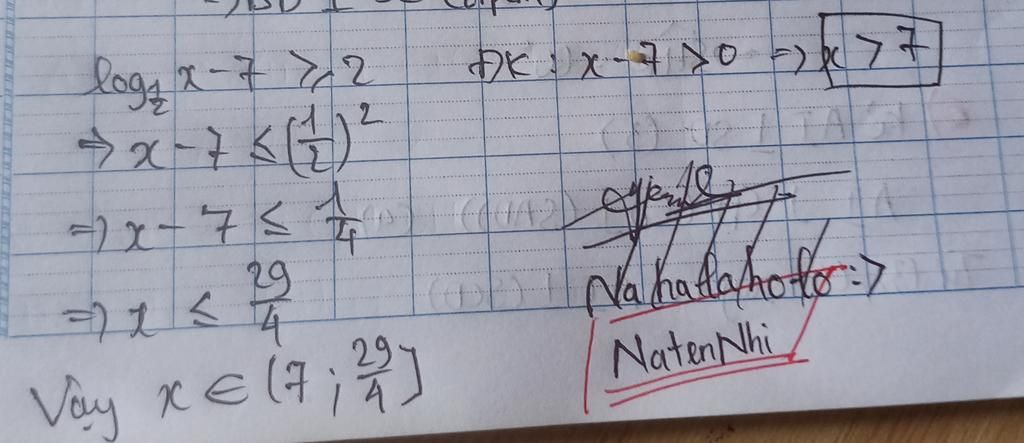 log½ x - 7 ≥ 2 ĐK : x - 7 > 0 => x > 7
=> x - 7 ≤ (1/2)²
=> x - 7 ≤ 1/4
=> x ≤ 29/4
Vậy x ∈ (7 ; 29/4]
Nahatahoto :>
NatenNhi